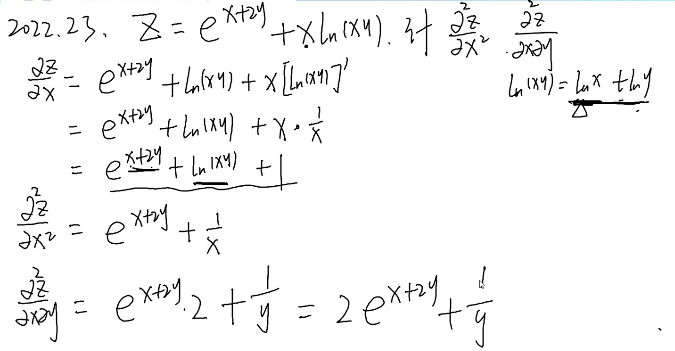 2022.23. Z = e^{x+2y} + x ln(xy). 计 ∂²z/∂x² ∂²z/∂x∂y
∂z/∂x = e^{x+2y} + ln(xy) + x[ln(xy)]' ln(xy) = lnx + lny
= e^{x+2y} + ln(xy) + x · 1/x
= e^{x+2y} + ln(xy) + 1
∂²z/∂x² = e^{x+2y} + 1/x
∂²z/∂x∂y = e^{x+2y}·2 + 1/y = 2e^{x+2y} + 1/y